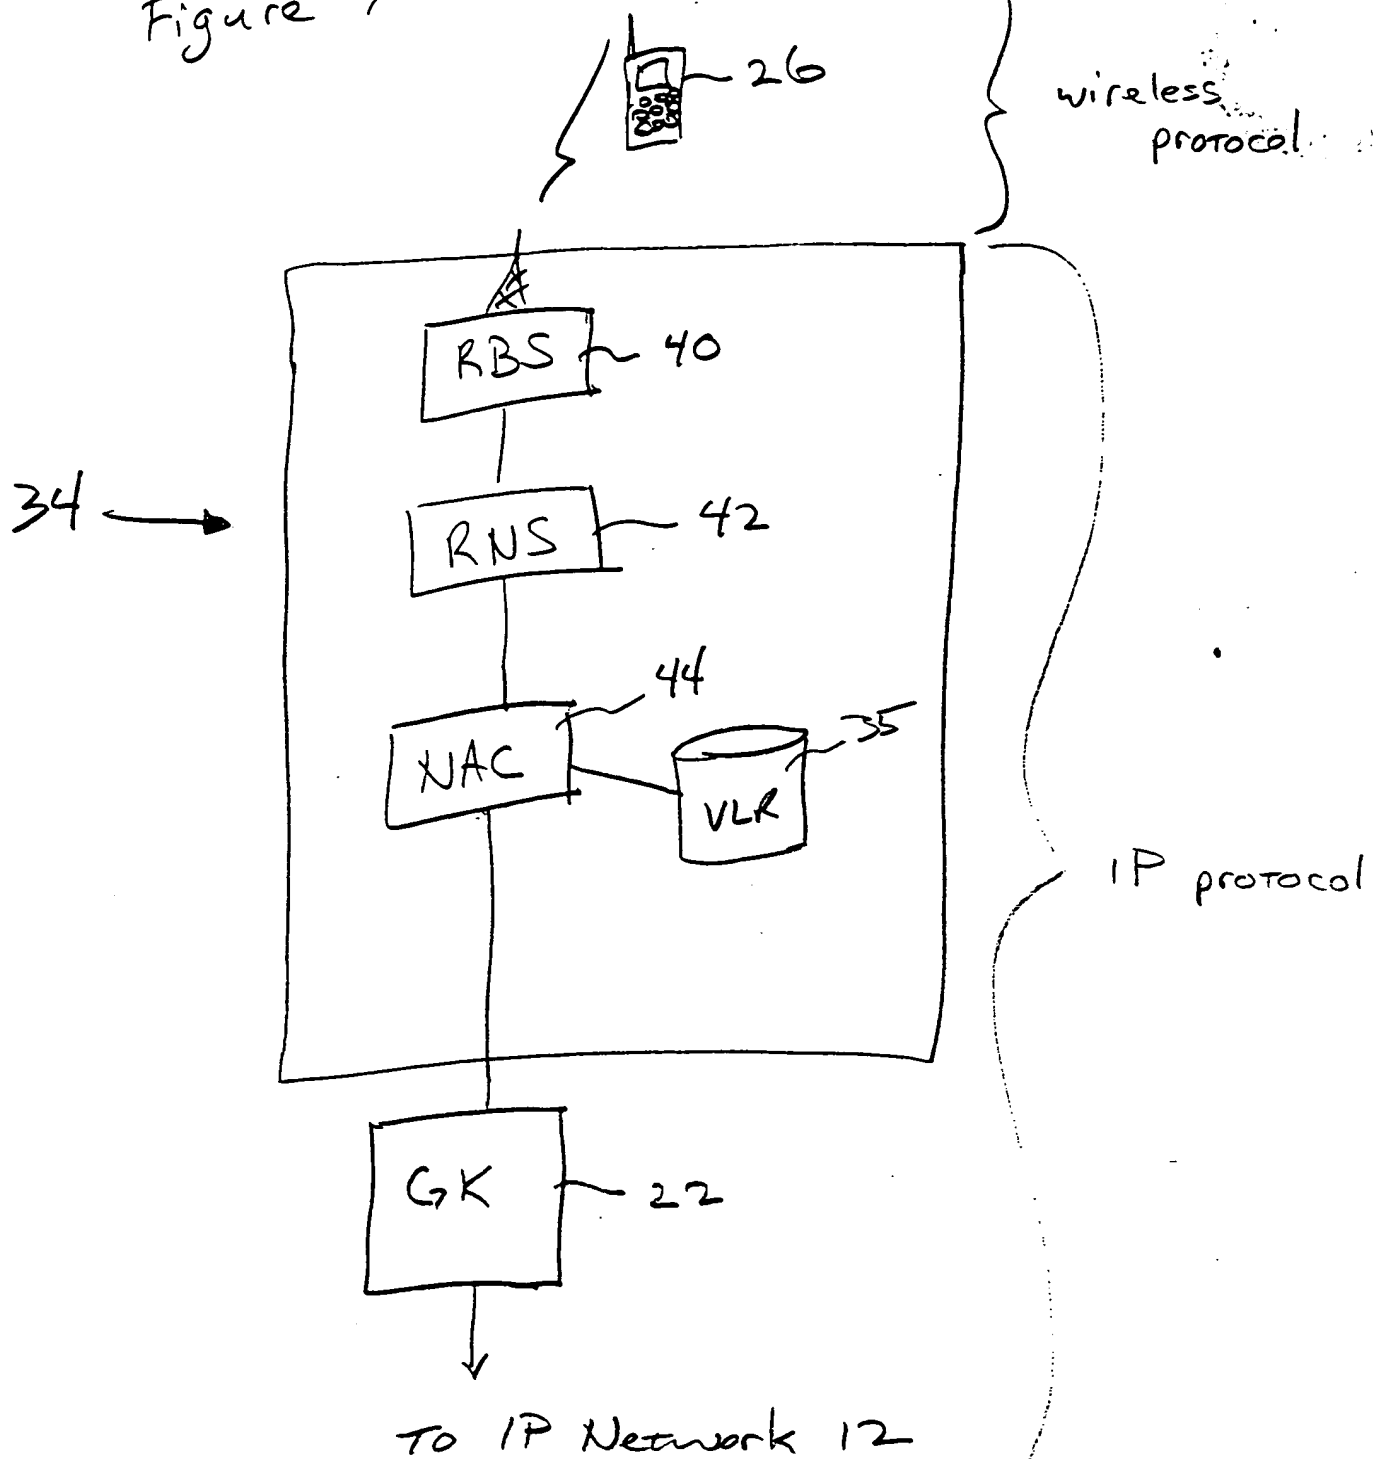 Figure
26
wireless
protocol
RBS
40
34
RNS
42
44
NAC
35
VLR
IP protocol
GK
22
To IP Network 12